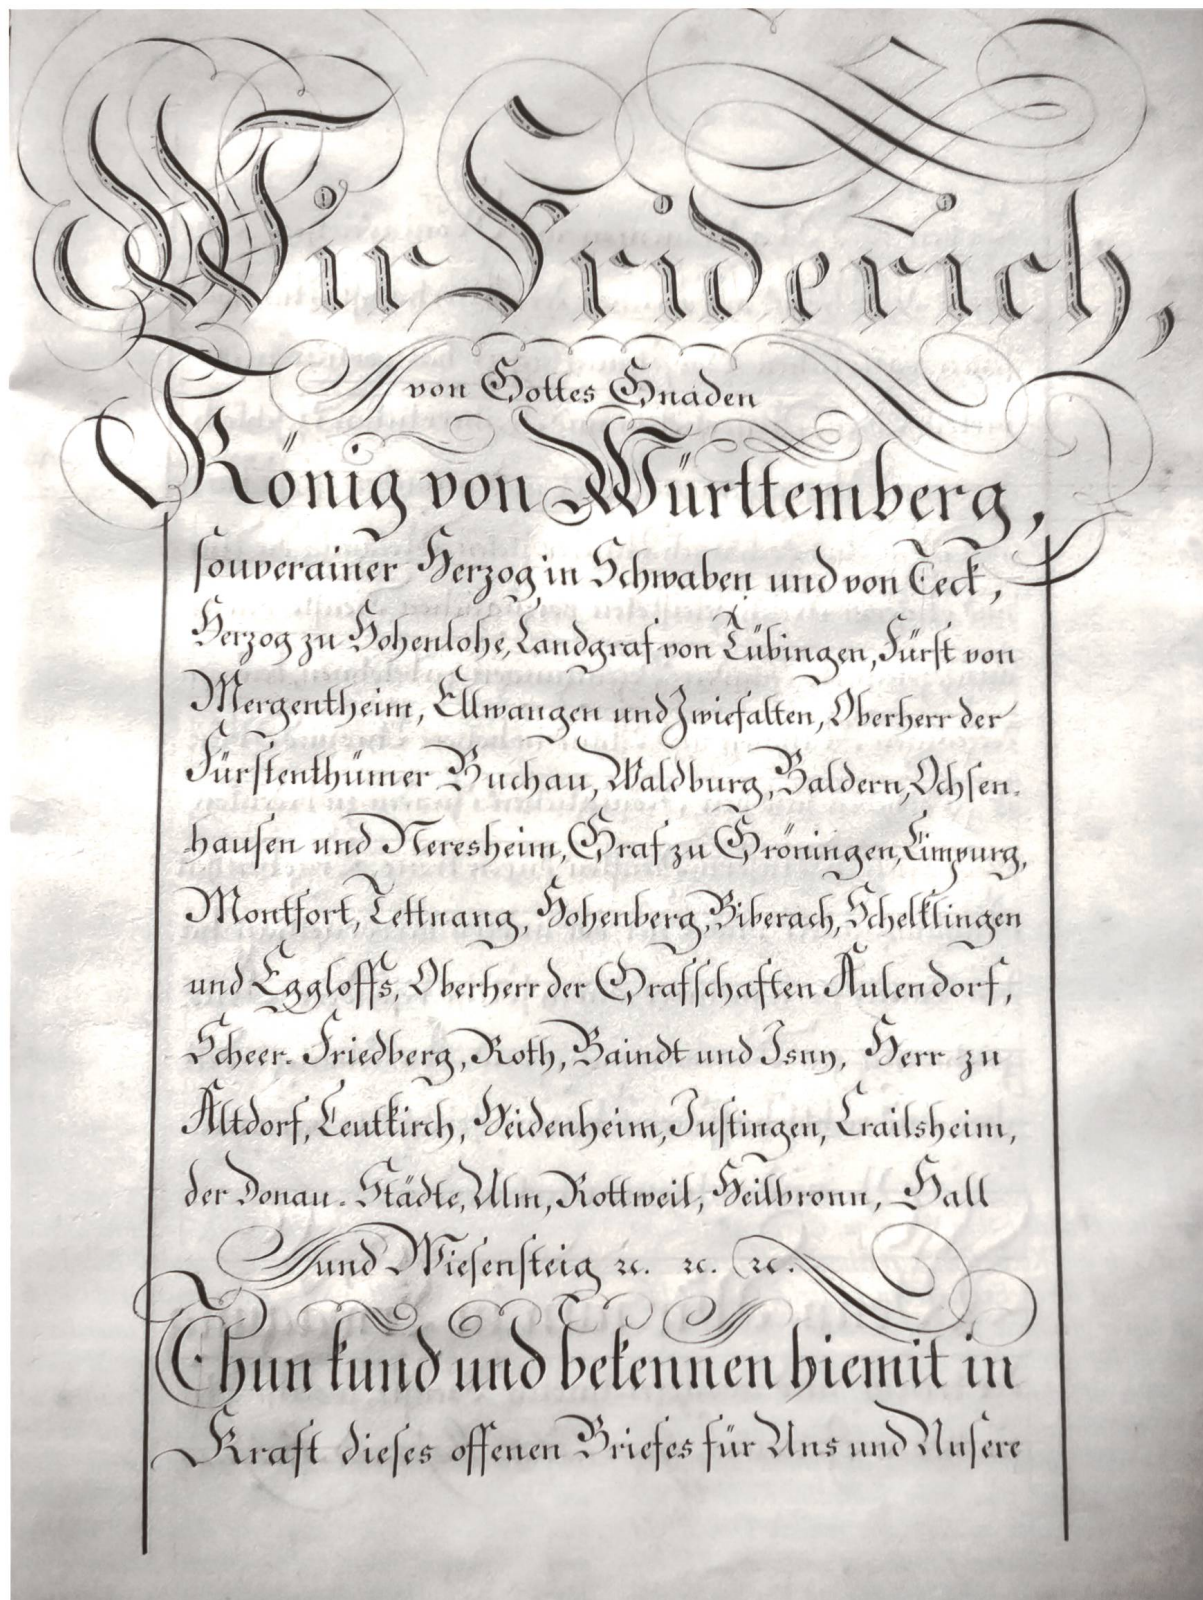 Wir Friderich,
von Gottes Gnaden
König von Württemberg,
souverainer Herzog in Schwaben und von Teck,
Herzog zu Hohenlohe, Landgraf von Tübingen, Fürst von
Mergentheim, Ellwangen und Zwiefalten, Oberherr der
Fürstenthümer Buchau, Waldburg, Baldern, Ochsen-
hausen und Neresheim, Graf zu Gröningen, Limpurg,
Montfort, Tettnang, Hohenberg, Biberach, Schelklingen
und Eggloffs, Oberherr der Grafschaften Aulendorf,
Scheer-Friedberg, Roth, Baindt und Isny, Herr zu
Altdorf, Leutkirch, Heidenheim, Justingen, Crailsheim,
der Donau-Städte, Ulm, Rottweil, Heilbronn, Hall
und Wiesensteig ꝛc. ꝛc. ꝛc.
Thun kund und bekennen hiemit in
Kraft dieses offenen Briefes für Uns und Unsere